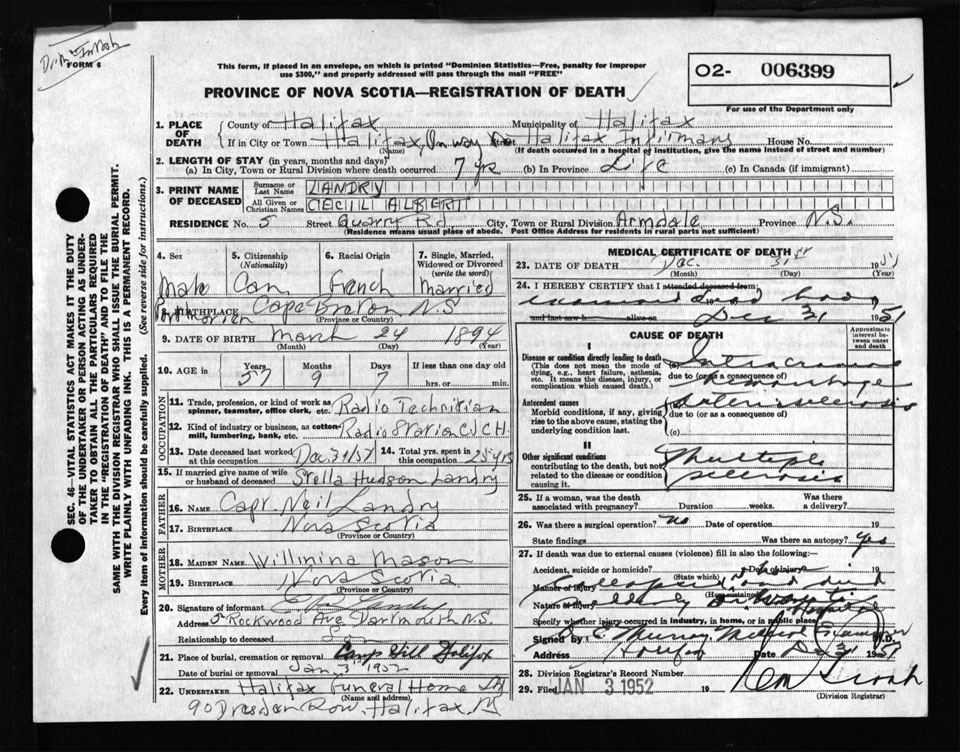 FORM 6
This form, if placed in an envelope, on which is printed "Dominion Statistics—Free, penalty for improper
use $300," and properly addressed will pass through the mail "FREE"
PROVINCE OF NOVA SCOTIA—REGISTRATION OF DEATH
02- 006399
For use of the Department only
SEC. 46—VITAL STATISTICS ACT MAKES IT THE DUTY
OF THE UNDERTAKER OR PERSON ACTING AS UNDER-
TAKER TO OBTAIN ALL THE PARTICULARS REQUIRED
IN THE "REGISTRATION OF DEATH" AND TO FILE THE
SAME WITH THE DIVISION REGISTRAR WHO SHALL ISSUE THE BURIAL PERMIT.
WRITE PLAINLY WITH UNFADING INK. THIS IS A PERMANENT RECORD.
Every item of information should be carefully supplied. (See reverse side for instructions.)
1. PLACE OF DEATH County of Halifax Municipality of Halifax
If in City or Town Halifax, On way to Street Halifax Infirmary House No.
(Name) (If death occurred in a hospital of institution, give the name instead of street and number)
2. LENGTH OF STAY (in years, months and days)
(a) In City, Town or Rural Division where death occurred 7 yrs (b) In Province Life (c) In Canada (if immigrant)
3. PRINT NAME OF DECEASED Surname or Last Name LANDRY
All Given or Christian Names CECIL ALBERT
RESIDENCE No. 5 Street Quarry Rd. City, Town or Rural Division Armdale Province N.S.
(Residence means usual place of abode. Post Office Address for residents in rural parts not sufficient)
4. Sex 5. Citizenship (Nationality) 6. Racial Origin 7. Single, Married, Widowed or Divorced (write the word)
Male Can French Married
BIRTHPLACE Port Morien Cape Breton N.S
(Province or Country)
9. DATE OF BIRTH March 24 1894
(Month) (Day) (Year)
10. AGE in Years Months Days If less than one day old
57 9 7 hrs. or min.
OCCUPATION
11. Trade, profession, or kind of work as spinner, teamster, office clerk, etc. Radio Technitian
12. Kind of industry or business, as cotton-mill, lumbering, bank, etc. Radio Station CJCH.
13. Date deceased last worked at this occupation Dec. 31/51 14. Total yrs. spent in this occupation 25 yrs
15. If married give name of wife or husband of deceased Stella Hudson Landry
FATHER
16. NAME Capt. Neil Landry
17. BIRTHPLACE Nova Scotia
(Province or Country)
MOTHER
18. MAIDEN NAME Willmina Mason
19. BIRTHPLACE Nova Scotia
(Province or Country)
20. Signature of informant
Address 5 Rockwood Ave. Dartmouth N.S.
Relationship to deceased Son
21. Place of burial, cremation or removal Camp Hill Halifax
Date of burial or removal Jan 3 1952
22. UNDERTAKER Halifax Funeral Home
(Name and address)
90 Dresden Row, Halifax
MEDICAL CERTIFICATE OF DEATH
23. DATE OF DEATH Dec. 31 1951
(Month) (Day) (Year)
24. I HEREBY CERTIFY that I attended deceased from:
examined dead body
and last saw h alive on Dec 31 1951
CAUSE OF DEATH
Approximate interval between onset and death
I
Disease or condition directly leading to death
(This does not mean the mode of dying, e.g., heart failure, asthenia, etc. It means the disease, injury, or complication which caused death.)
(a) Intracranial
due to (or as a consequence of) hemorrhage
Antecedent causes
Morbid conditions, if any, giving rise to the above cause, stating the underlying condition last.
(b) arteriosclerosis
due to (or as a consequence of)
(c)
II
Other significant conditions
contributing to the death, but not related to the disease or condition causing it.
Multiple sclerosis
25. If a woman, was the death associated with pregnancy? Duration weeks. Was there a delivery?
26. Was there a surgical operation? no Date of operation 19
State findings Was there an autopsy? Yes
27. If death was due to external causes (violence) fill in also the following:—
Accident, suicide or homicide? Date of injury 19
(State which)
Manner of injury Collapsed and died
(How sustained)
Nature of injury
Specify whether injury occurred in industry, in home, or in public place
Signed by Murray Medical Examiner M.D.
Address Halifax Date Dec 31 1951
28. Division Registrar's Record Number
29. Filed JAN 3 1952 19
(Division Registrar)